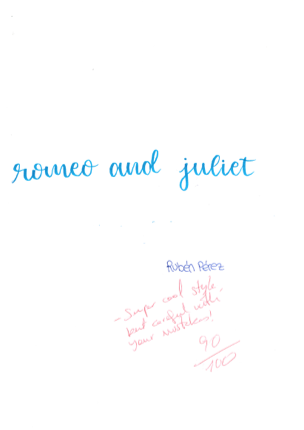 romeo and juliet
Rubén Pérez
- Super cool style,
but careful with
your mistakes!
90
100